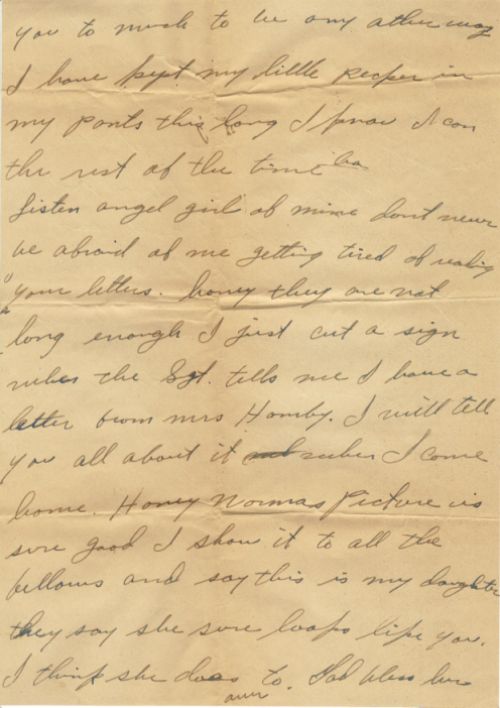 you to much to be any other way
I have kept my little pecker in
my pants this long I know I can
the rest of the time ha
listen angel girl of mine dont never
be afraid of me getting tired of reading
your letters. honey they are not
long enough I just cut a sign
when the Sgt. tells me I have a
letter from mrs Hornby. I will tell
you all about it when I come
home. Honey Normas Picture is
sure good I show it to all the
fellows and say this is my daughter
they say she sure looks like you.
I think she does to. God bless her